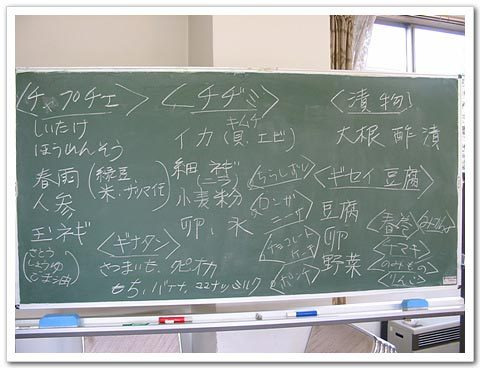 〈チャプチェ〉
しいたけ
ほうれんそう
春雨(緑豆、
米、サツマ任)
人参
玉ネギ
(さとう
しょうゆ
ごま油)
〈チヂミ〉
キムチ
イカ(貝、エビ)
細ネギ
小麦粉
卵、水
〈ギナタン〉
さつまいも、タピオカ
もち、バナナ、ココナッツミルク
〈ちらしずし〉
〈カンガ
ニーサ〉
〈チョコレート
ケーキ〉
〈ポンチ〉
〈漬物〉
大根酢漬
〈ギセイ豆腐〉
豆腐
卵
野菜
〈春巻〉
〈チマキ〉
〈のみもの〉
〈りんご〉